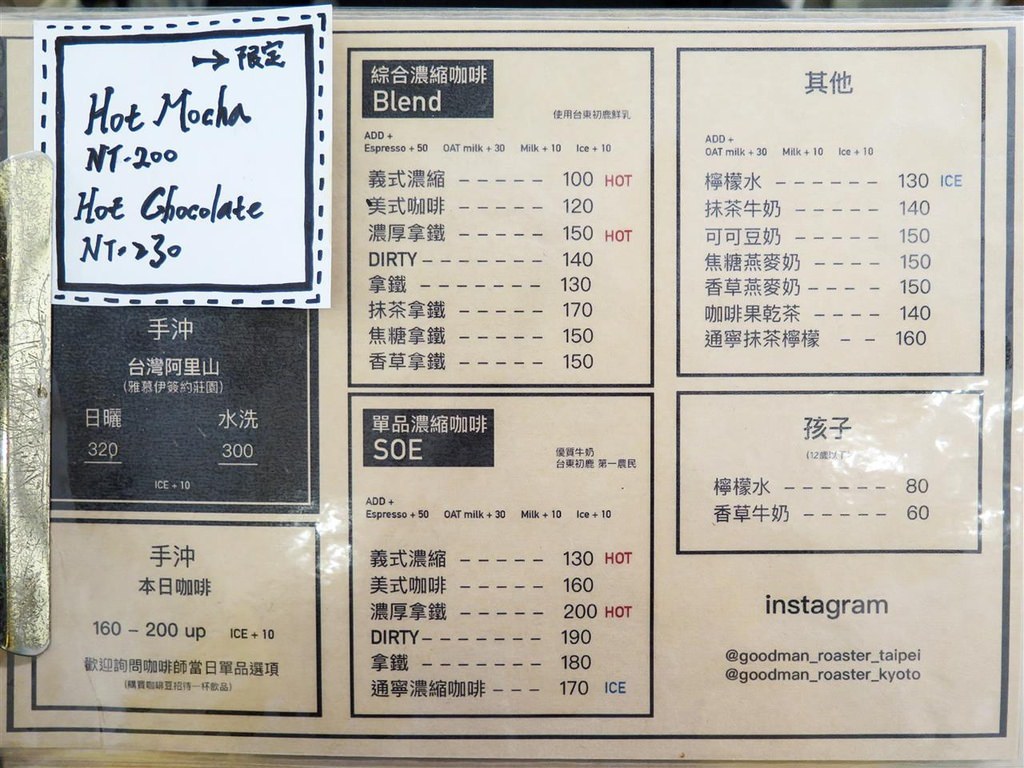 →限定
Hot Mocha
NT.200
Hot Chocolate
NT.230
手沖
台灣阿里山
(雅慕伊簽約莊園)
日曬 水洗
320 300
ICE + 10
手沖
本日咖啡
160 – 200 up ICE + 10
歡迎詢問咖啡師當日單品選項
(購買咖啡豆招待一杯飲品)
綜合濃縮咖啡
Blend
使用台東初鹿鮮乳
ADD +
Espresso + 50 OAT milk + 30 Milk + 10 Ice + 10
義式濃縮 – – – – – 100 HOT
美式咖啡 – – – – – 120
濃厚拿鐵 – – – – – 150 HOT
DIRTY – – – – – – – 140
拿鐵 – – – – – – – 130
抹茶拿鐵 – – – – – 170
焦糖拿鐵 – – – – – 150
香草拿鐵 – – – – – 150
單品濃縮咖啡
SOE
優質牛奶
台東初鹿 第一農民
ADD +
Espresso + 50 OAT milk + 30 Milk + 10 Ice + 10
義式濃縮 – – – – – 130 HOT
美式咖啡 – – – – – 160
濃厚拿鐵 – – – – – 200 HOT
DIRTY – – – – – – – 190
拿鐵 – – – – – – – 180
通寧濃縮咖啡 – – – 170 ICE
其他
ADD +
OAT milk + 30 Milk + 10 Ice + 10
檸檬水 – – – – – – 130 ICE
抹茶牛奶 – – – – – 140
可可豆奶 – – – – – 150
焦糖燕麥奶 – – – – 150
香草燕麥奶 – – – – 150
咖啡果乾茶 – – – – 140
通寧抹茶檸檬 – – 160
孩子
(12歲以下)
檸檬水 – – – – – – 80
香草牛奶 – – – – – 60
instagram
@goodman_roaster_taipei
@goodman_roaster_kyoto